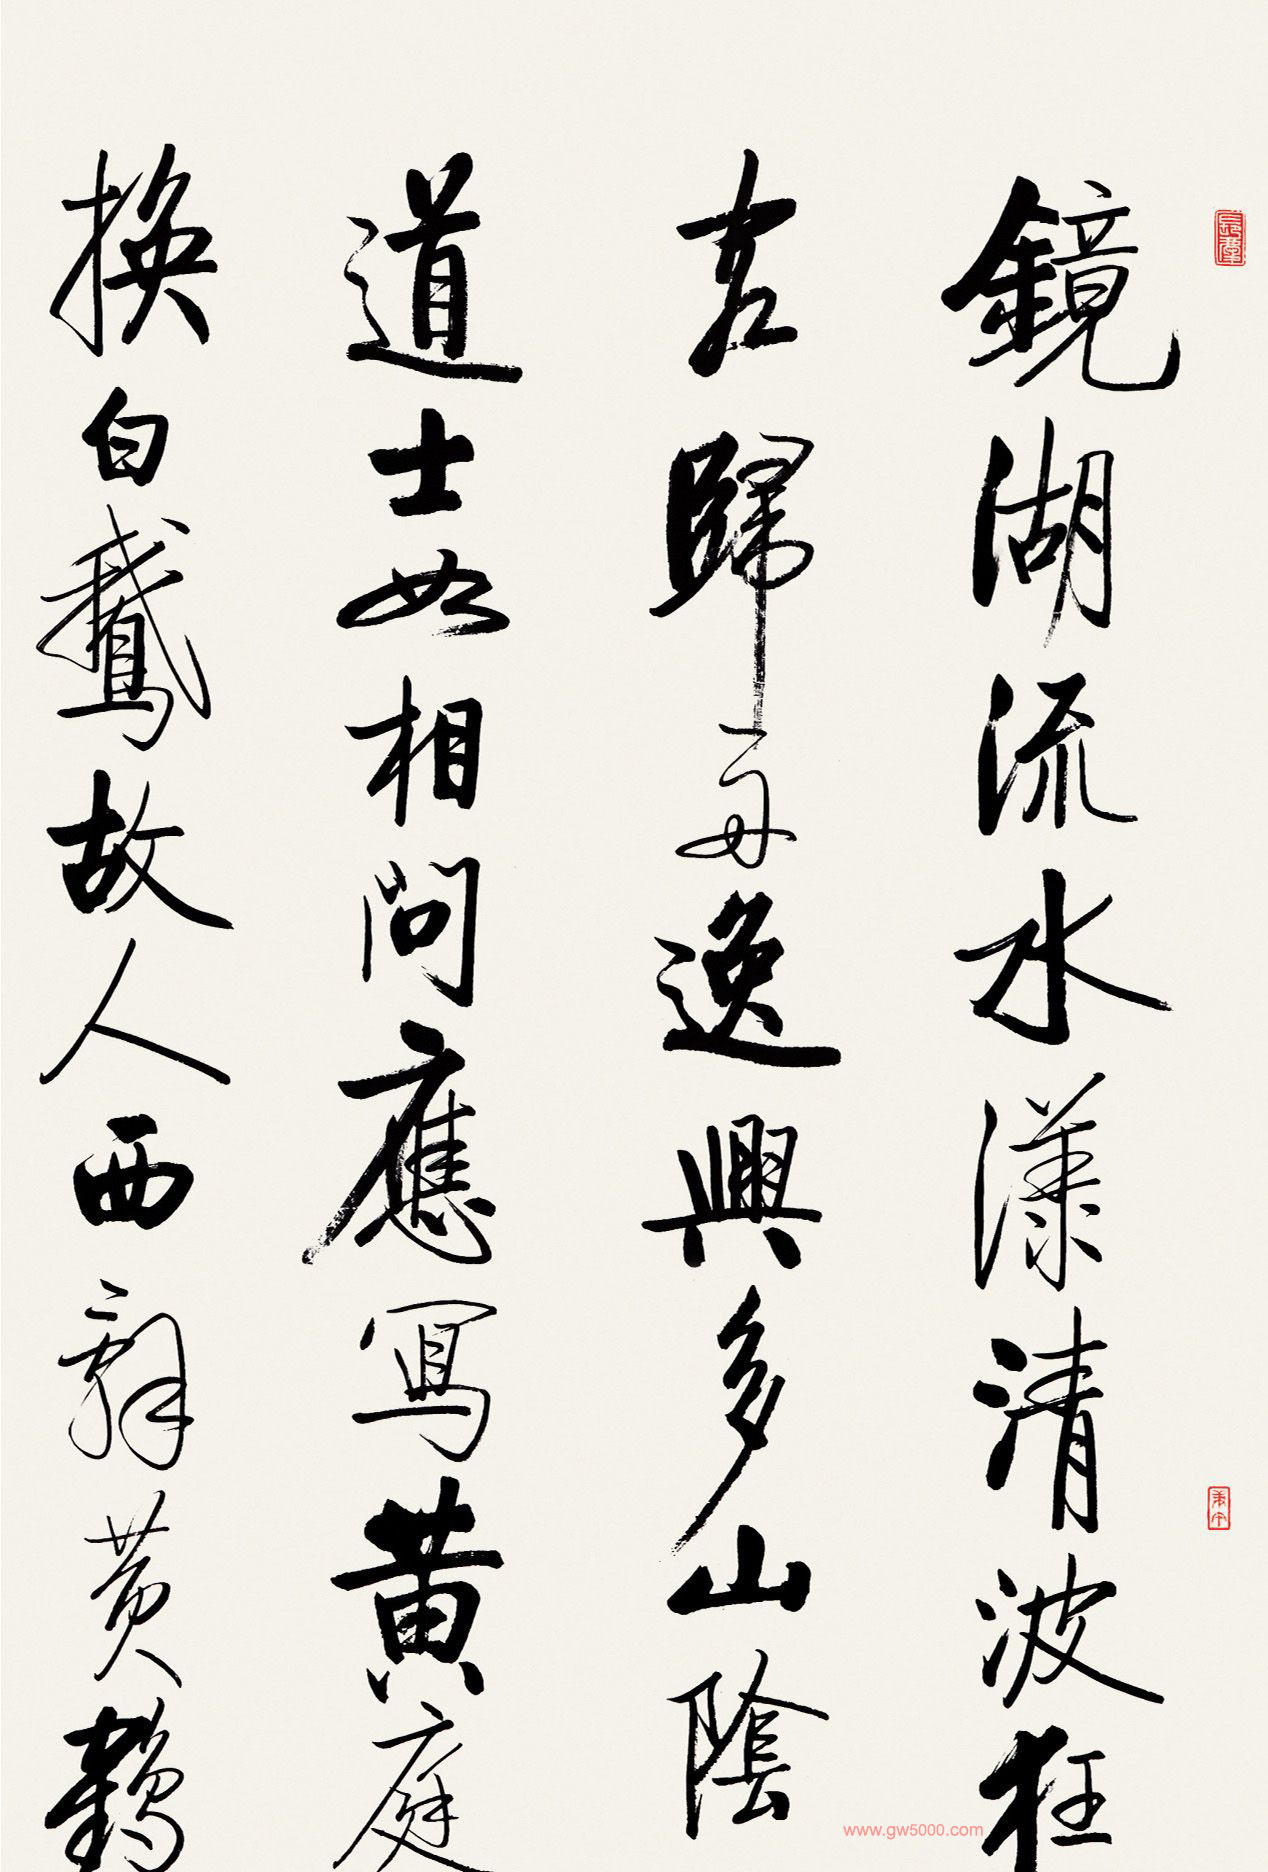 鏡湖流水漾清波狂
客歸舟逸興多山陰
道士如相問應寫黃庭
換白鵝故人西辭黃鶴
www.gw5000.com